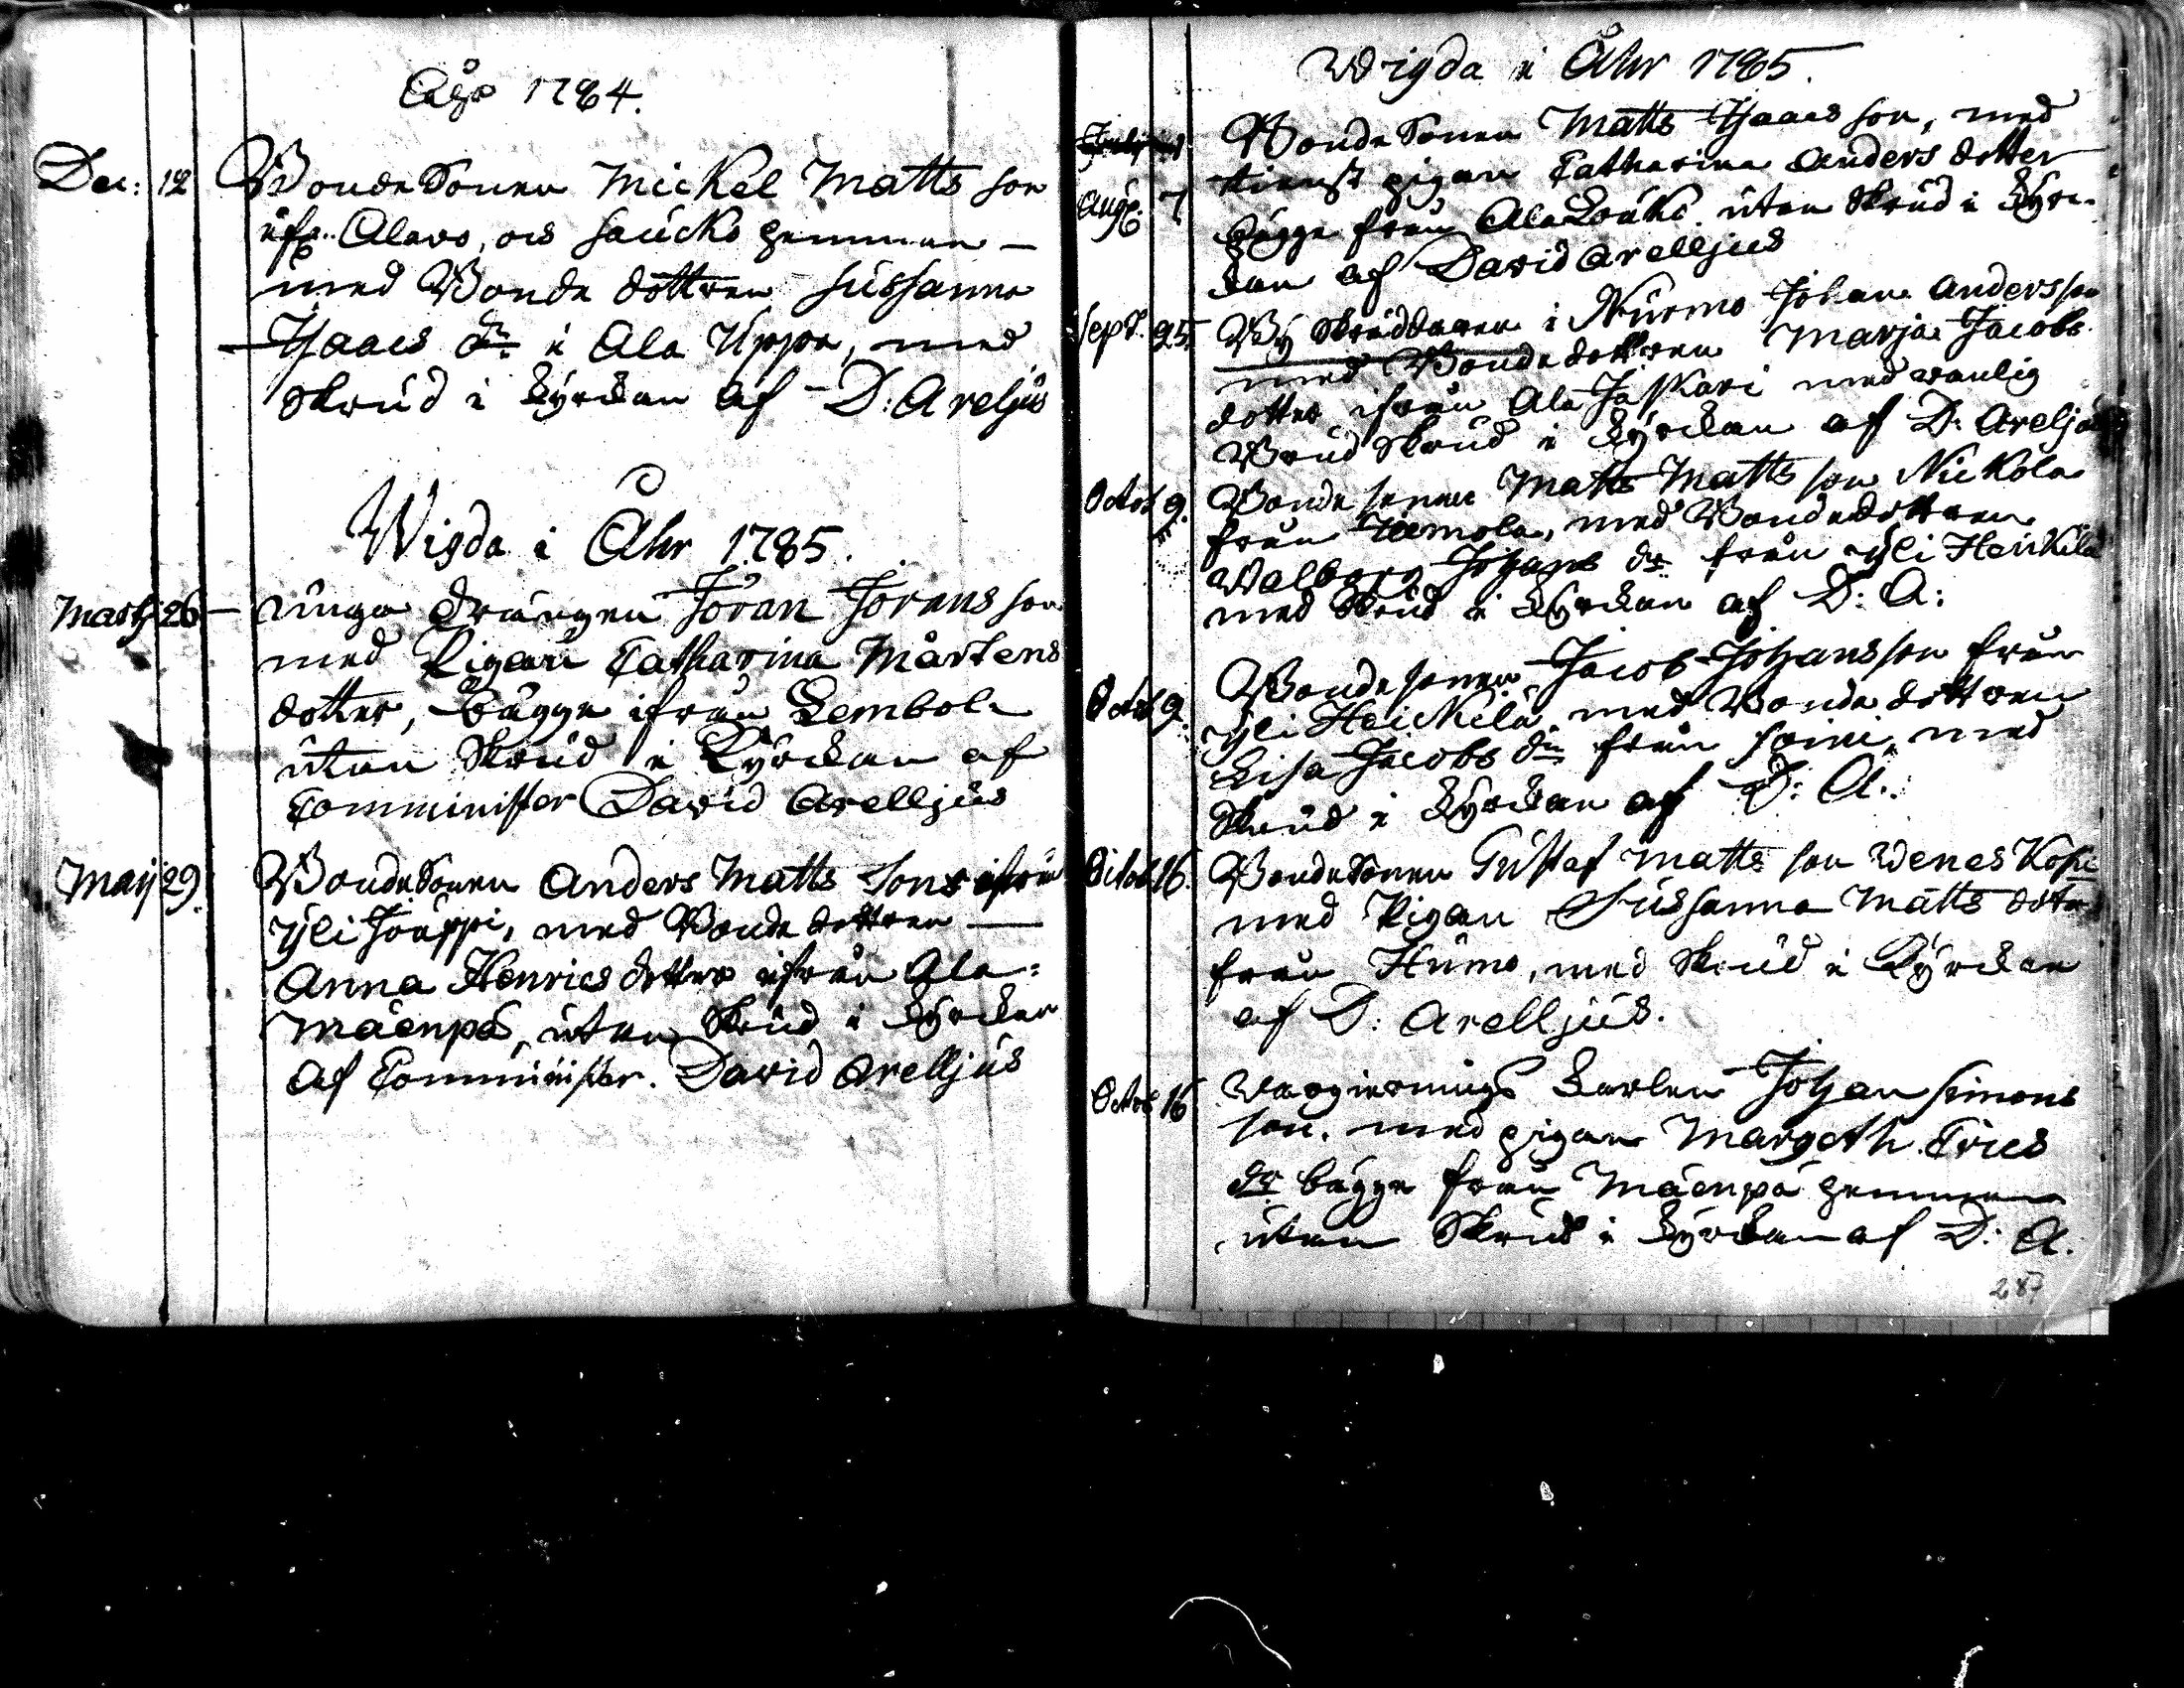 Åhr 1784.
Dec: 12 Bonde Sonen Mickel Matts son
ifr. Alavo, ocs Saucko hemman
med Bonde dottren Sussanna
Isaacs dr. i Ala Uppa, med
Skrud i Kyrckan af D: Areljus
Wigda i Åhr 1785.
Marty 26 unga drängen Jöran Jörans son
med Pigan Catharina Mårtens
dotter, bägge ifrån Lembola
utan Skrud i Kyrckan af
Comminister David Arelljus
Maij 29. Bonde Sonen Anders Matts Son ifrån
Yli Jouppi, med Bonde dottren
Anna Henrics dotter ifrån Ala-
Mäenpä, utan Skrud i Kyrckan
af Comminister. David Arelljus
Wigda i Åhr 1785.
Bonde Sonen Matts Isaacs son, med
Augt: 7 tienst pigan Catharina Anders dotter
bägge från Ala Louko utan Skrud i Kyrc-
kan af David Arelljus
Sept. 25. By Skräddaren i Nurmo Johan Andersson
med Bonde dottren Marja Jacobs
dotter ifrån Ala Jaskari med vanlig
Brud Skrud i Kyrckan af D: Areljus
Octob 9. Bonde sonen Matts Matts son Nickola
från Hemola, med Bonde dottren
Walborg Johans dr från Yli Heickilä
med Skrud i Kyrckan af D: A:
Octob 9. Bonde sonen Jacob Johansson från
Yli Heickilä, med Bonde dottren
Lisa Jacobs dr från Soini, med
Skrud i Kyrckan af D: A.
Octob 16. Bonde Sonen Gustaf Matts son Wenes Koski
med Pigan Sussanna Matts dotter
från Humo, med Skrud i Kyrckan
af D: Arelljus.
Octob 16 Wargierings Karlen Johan Simons
son. med pigan Margeth Erics
dr bägge från Mäenpä hemman
utan Skrud i Kyrckan af D: A.
287